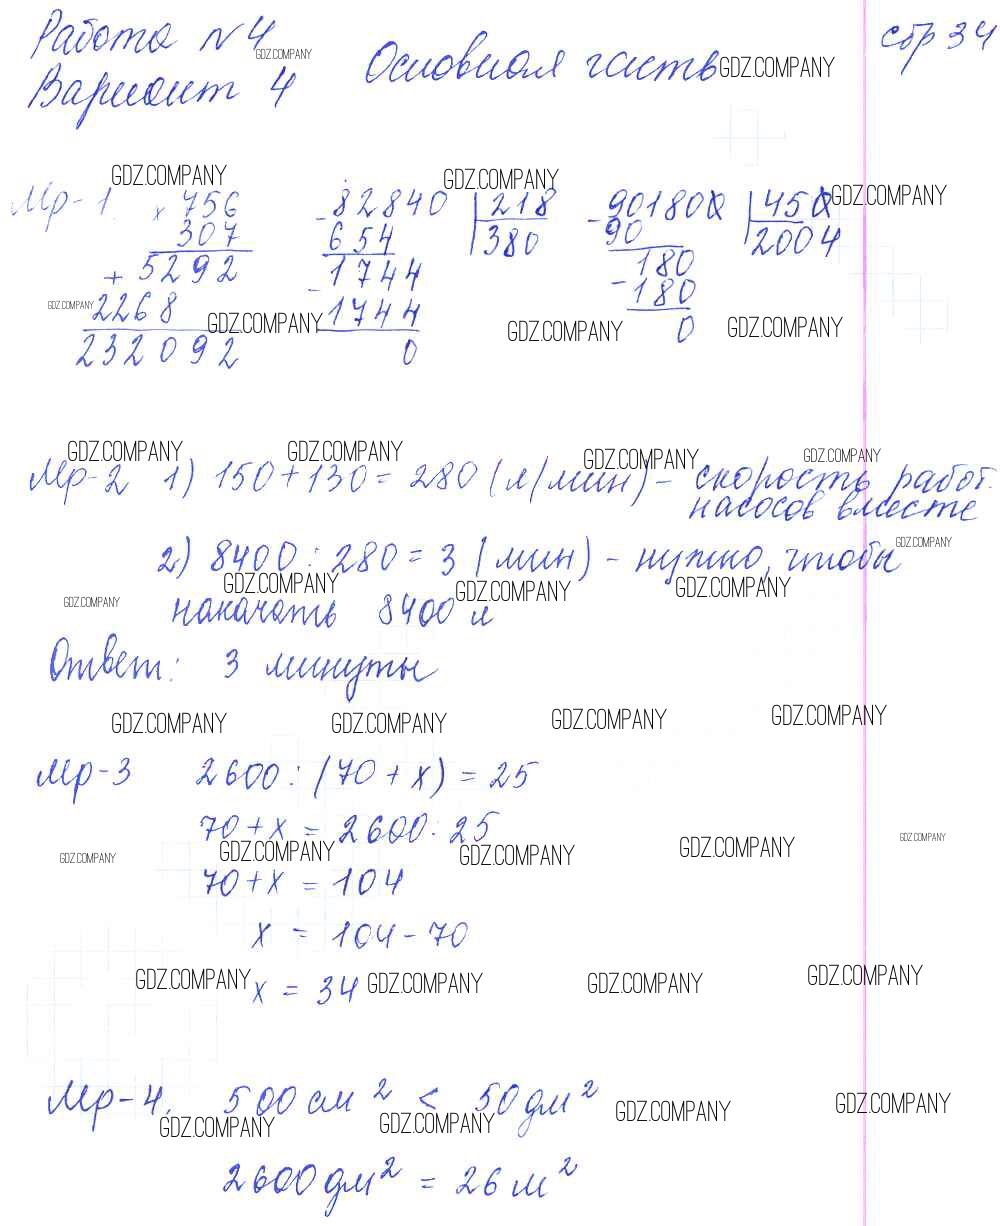 Работа №4
Вариант 4
Основная часть
стр 34
GDZ.COMPANY
GDZ.COMPANY
GDZ.COMPANY
GDZ.COMPANY
GDZ.COMPANY
Мр-1. × 756 - 82840 | 218 - 901800 | 450
307 654 380 90 2004
+ 5292 - 1744 180
2268 1744 - 180
232092 0 0
GDZ.COMPANY
GDZ.COMPANY
GDZ.COMPANY
GDZ.COMPANY
GDZ.COMPANY
GDZ.COMPANY
GDZ.COMPANY
GDZ.COMPANY
Мр-2 1) 150 + 130 = 280 (л/мин) - скорость работ.
насосов вместе
2) 8400 : 280 = 3 (мин) - нужно, чтобы
GDZ.COMPANY
GDZ.COMPANY
GDZ.COMPANY
GDZ.COMPANY
GDZ.COMPANY
накачать 8400 л
Ответ: 3 минуты
GDZ.COMPANY
GDZ.COMPANY
GDZ.COMPANY
GDZ.COMPANY
Мр-3 2600 : (70 + x) = 25
70 + x = 2600 : 25
GDZ.COMPANY
GDZ.COMPANY
GDZ.COMPANY
GDZ.COMPANY
GDZ.COMPANY
70 + x = 104
x = 104 - 70
x = 34
GDZ.COMPANY
GDZ.COMPANY
GDZ.COMPANY
GDZ.COMPANY
Мр-4. 500 см² < 50 дм²
GDZ.COMPANY
GDZ.COMPANY
GDZ.COMPANY
GDZ.COMPANY
2600 дм² = 26 м²